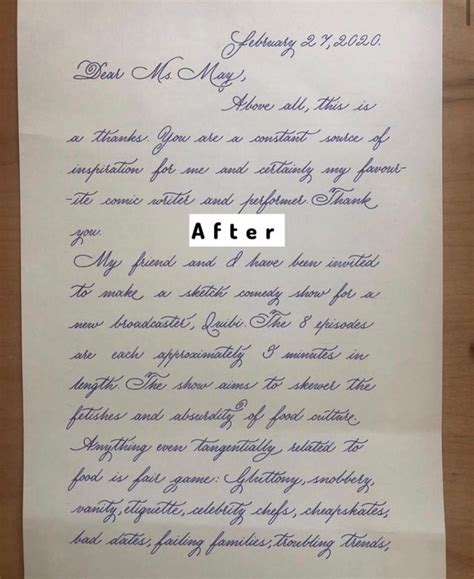 February 27, 2020.
Dear Ms. May,
Above all, this is
a thanks. You are a constant source of
inspiration for me and certainly my favour-
-ite comic writer and performer. Thank
you.
After
My friend and I have been invited
to make a sketch comedy show for a
new broadcaster, Quibi. The 8 episodes
are each approximately 5 minutes in
length. The show aims to skewer the
fetishes and absurdity of food culture.
Anything even tangentially related to
food is fair game: Gluttony, snobbery,
vanity, etiquette, celebrity chefs, cheapskates,
bad dates, failing families, troubling trends,